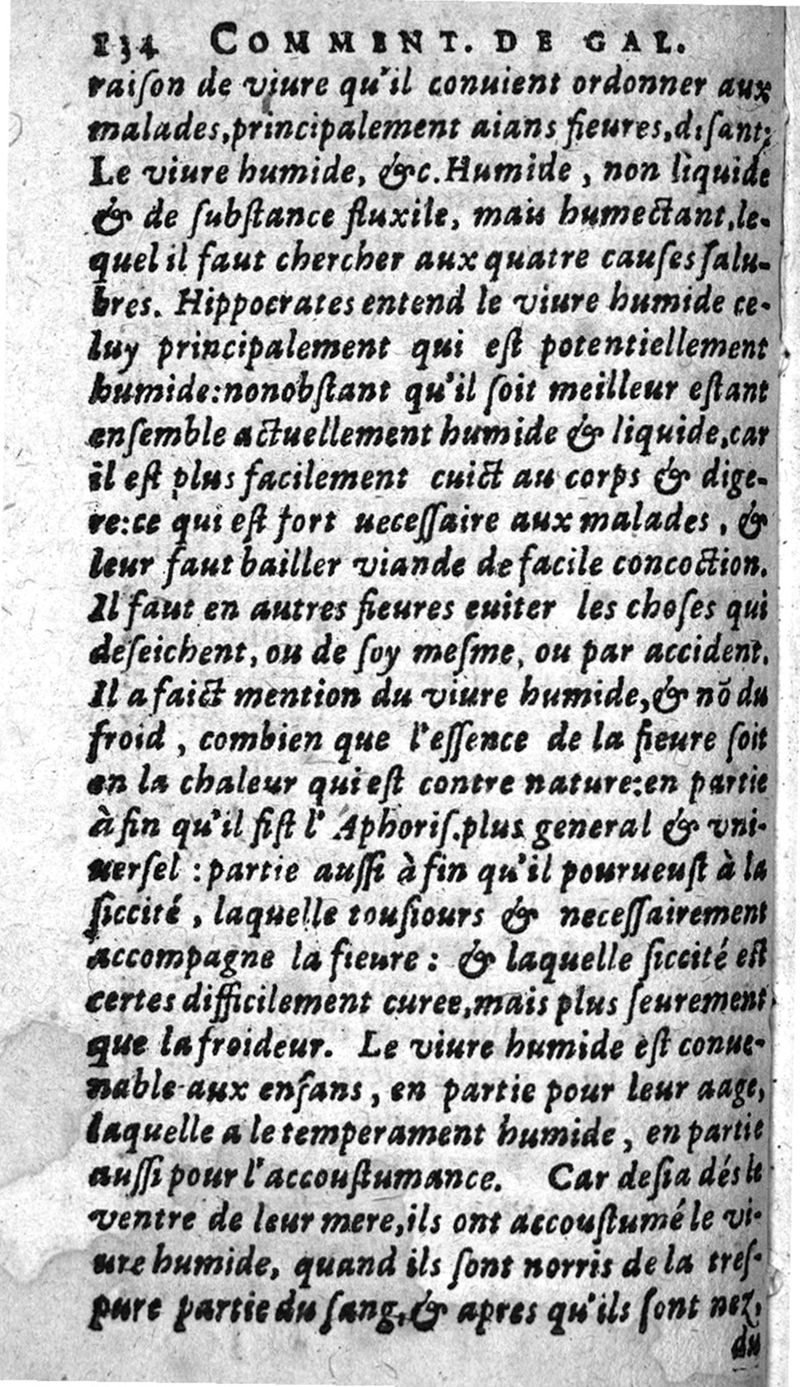 134 COMMENT. DE GAL.
raiſon de viure qu'il conuient ordonner aux
malades, principalement aians fieures, diſant:
Le viure humide, &c. Humide, non liquide
& de ſubſtance fluxile, mais humectant, le-
quel il faut chercher aux quatre cauſes ſalu-
bres. Hippocrates entend le viure humide ce-
luy principalement qui eſt potentiellement
humide: nonobſtant qu'il ſoit meilleur eſtant
enſemble actuellement humide & liquide, car
il eſt plus facilement cuict au corps & dige-
re: ce qui eſt fort ueceſſaire aux malades, &
leur faut bailler viande de facile concoction.
Il faut en autres fieures euiter les choſes qui
deſeichent, ou de ſoy meſme, ou par accident.
Il a faict mention du viure humide, & nõ du
froid, combien que l'eſſence de la fieure ſoit
en la chaleur qui eſt contre nature: en partie
à fin qu'il fiſt l'Aphoriſ. plus general & vni-
uerſel: partie auſſi à fin qu'il pourueuſt à la
ſiccité, laquelle touſiours & neceſſairement
accompagne la fieure: & laquelle ſiccité eſt
certes difficilement curee, mais plus ſeurement
que la froideur. Le viure humide eſt conue-
nable aux enfans, en partie pour leur aage,
laquelle a le temperament humide, en partie
auſſi pour l'accouſtumance. Car deſia dés le
ventre de leur mere, ils ont accouſtumé le vi-
ure humide, quand ils ſont norris de la treſ-
pure partie du ſang, & apres qu'ils ſont nez,
du